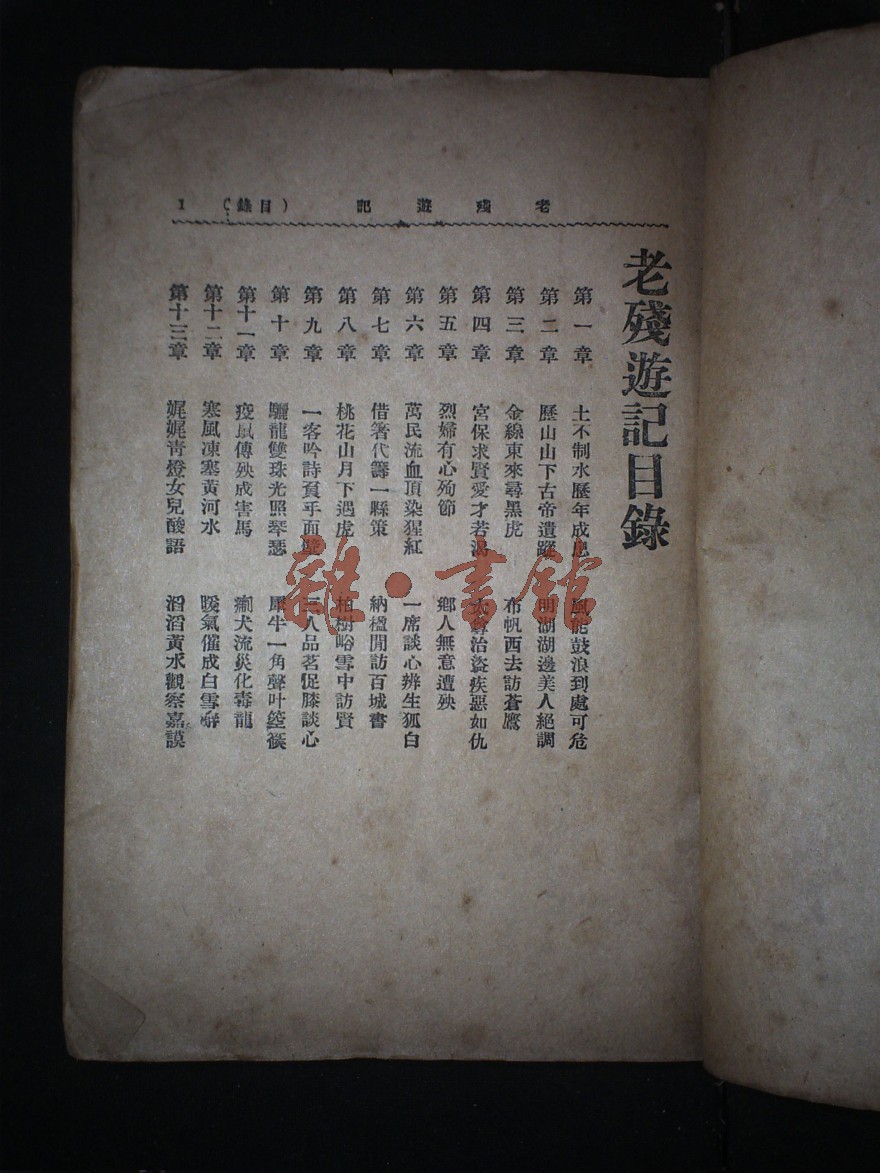 老殘遊記（目錄） 1
老殘遊記目錄
第一章 土不制水歷年成患 風能鼓浪到處可危
第二章 歷山山下古帝遺蹤 明湖湖邊美人絕調
第三章 金線東來尋黑虎 布帆西去訪蒼鷹
第四章 宮保求賢愛才若渴 太尊治盜疾惡如仇
第五章 烈婦有心殉節 鄉人無意遭殃
第六章 萬民流血頂染猩紅 一席談心辨生狐白
第七章 借箸代籌一縣策 納楹閒訪百城書
第八章 桃花山月下遇虎 柏樹峪雪中訪賢
第九章 一客吟詩負手面壁 三人品茗促膝談心
第十章 驪龍雙珠光照琴瑟 犀牛一角聲叶箜篌
第十一章 疫鼠傳殃成害馬 瘈犬流災化毒龍
第十二章 寒風凍塞黃河水 暖氣催成白雪辭
第十三章 娓娓青燈女兒酸語 滔滔黃水觀察嘉謨
雜·書館